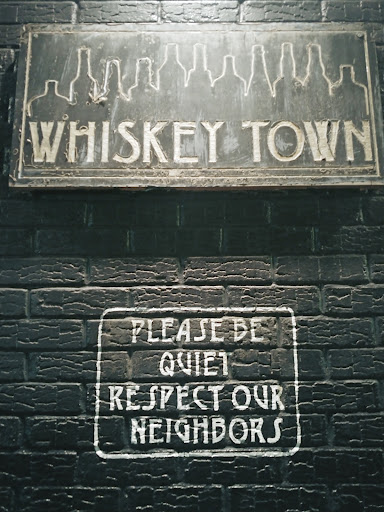 WHISKEY TOWN
PLEASE BE
QUIET
RESPECT OUR
NEIGHBORS